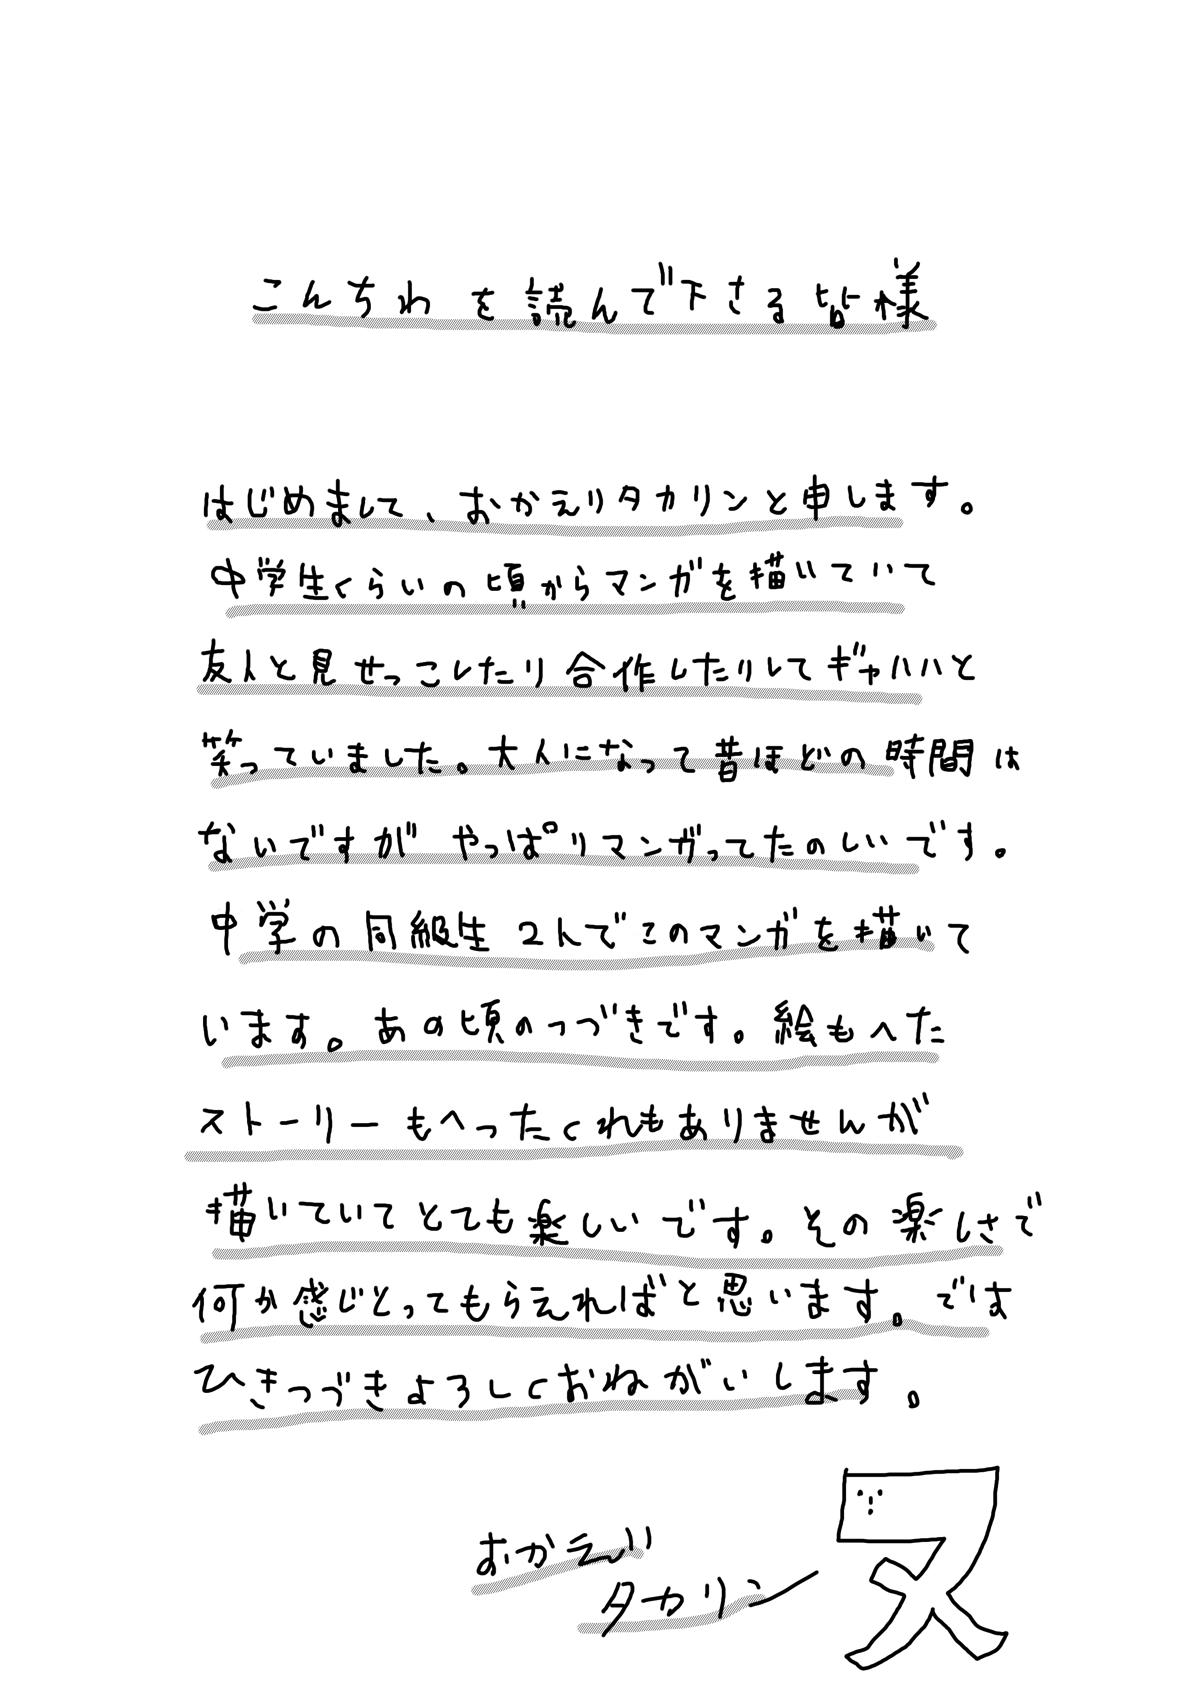 こんちわを読んで下さる皆様
はじめまして、おかえりタカリンと申します。
中学生くらいの頃からマンガを描いていて
友人と見せっこしたり合作したりしてギャハハと
笑っていました。大人になって昔ほどの時間は
ないですがやっぱりマンガってたのしいです。
中学の同級生2人でこのマンガを描いて
います。あの頃のつづきです。絵もへた
ストーリーもへったくれもありませんが
描いていてとても楽しいです。その楽しさで
何か感じとってもらえればと思います。では
ひきつづきよろしくおねがいします。
おかえり
タカリン
ヌ